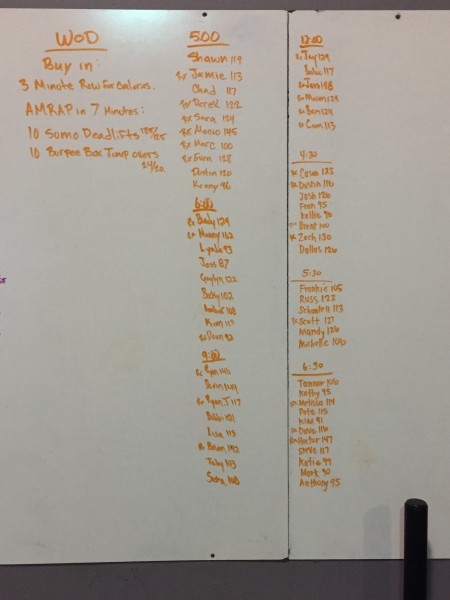 WOD
Buy in:
3 Minute Row For Calories.
AMRAP in 7 Minutes:
10 Sumo Deadlifts
10 Burpee Box Jump overs
24/20
5:00
Shawn 119
Rx Jamie 113
Chad 117
Rx Derek 122
Rx Sara 124
Rx 145
Rx Marc 100
Rx 128
Dustin 120
Kenny 96
6:00
Rx 129
Rx Manny 162
Lynda 93
Jess 87
122
Becky 102
108
Kim 117
Rx Dean 92
9:00
Rx Ryan 141
Devin 144
Rx Ryan J 117
Bobbi 101
Lisa 115
Rx 142
Toby 103
108
12:00
Rx Jay 129
117
Jen 148
129
Rx Ben 124
Rx Cam 113
4:30
Rx Casan 123
Rx Dustin 116
Josh 126
Fran 95
Kellie 90
Brent 100
Rx Zach 130
Dallas 126
5:30
Frankie 105
Russ 122
113
Rx Scott 127
Mandy 126
Michelle 106
6:30
Tanner 106
Kathy 95
Rx Melissa 114
Pete 115
Kim 91
Rx Dave 116
Rx Hector 147
Steve 117
Katie 99
Mark 90
Anthony 95